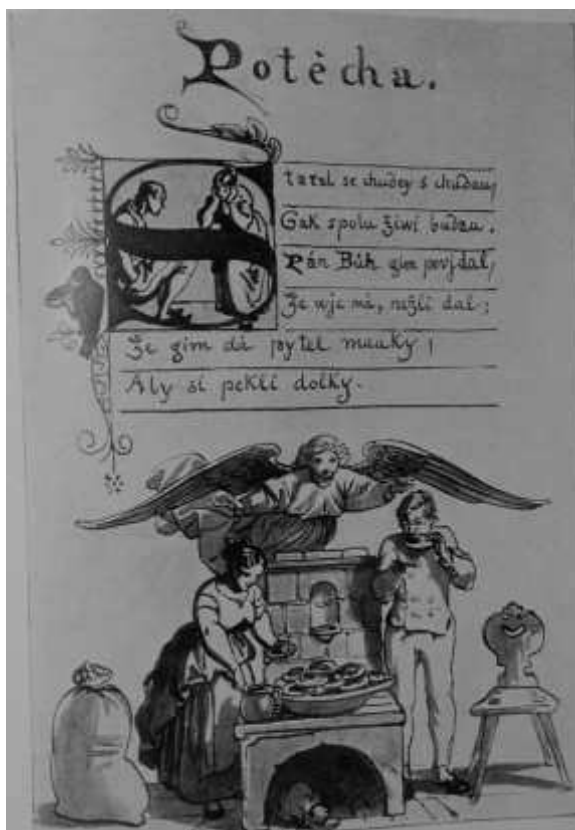 Potěcha.
Staral se chudey s chudau,
Gak spolu žiwi budau.
Pán Bůh gim povjdal,
Že wjc má, nežli dal;
Že gim dá pytel mauky,
Aby si pekli dolky.